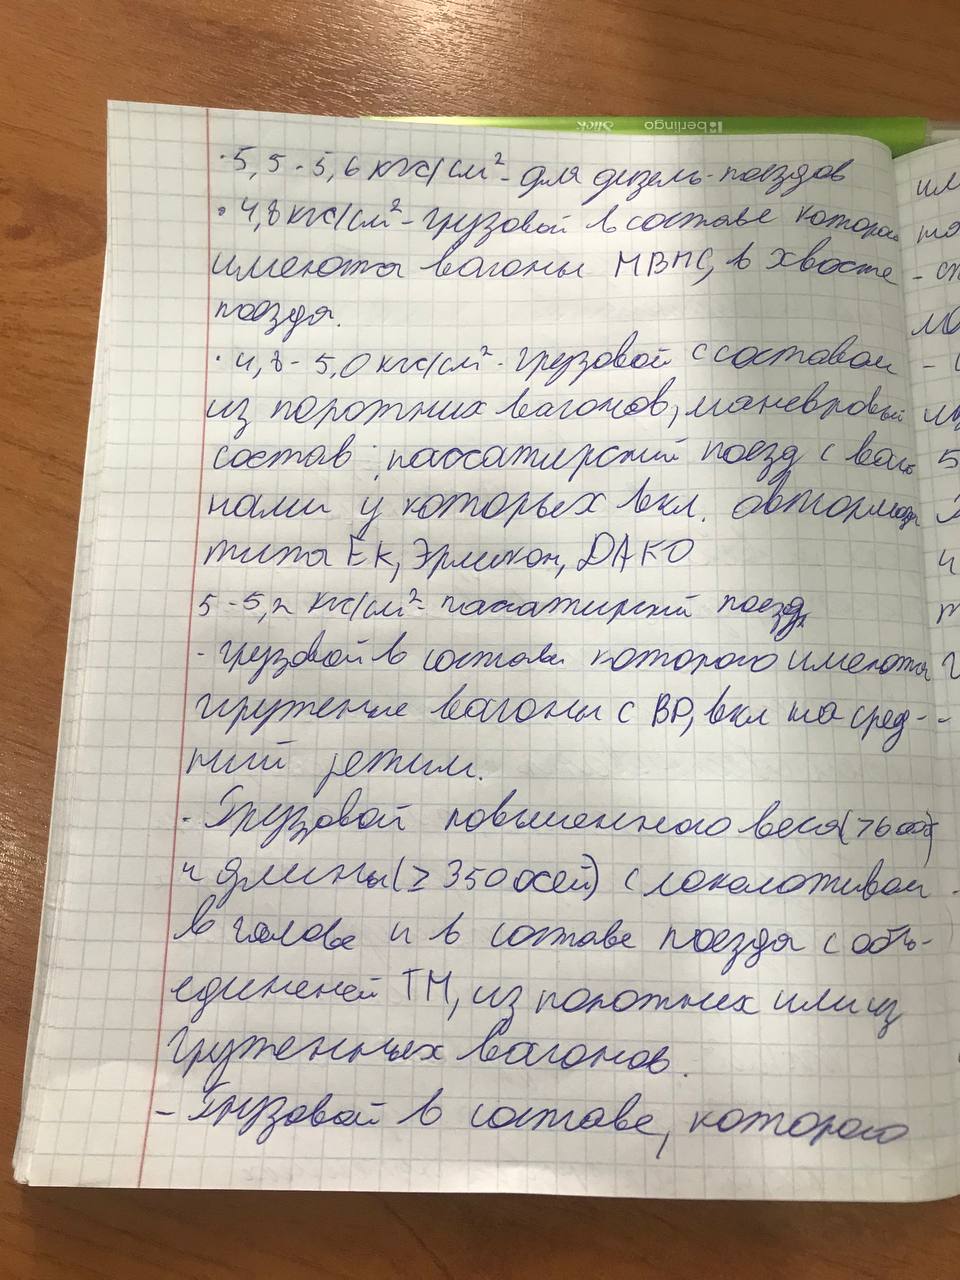 · 5,5 - 5,6 кгс/см² - для дизель-поездов
· 4,8 кгс/см² - грузовой в составе которого
имеюта вагоны МВПС, в хвосте
поезда.
· 4,8 - 5,0 кгс/см² - грузовой с составом
из порожних вагонов, маневровый
состав; пассажирский поезд с ваго
нами у которых вкл.
типа Ек, Эрликон, ДАКО
5 - 5,2 кгс/см² - пассажирский поезд
- грузовой в составе которого имеюта
груженые вагоны с ВР, вкл на сред-
ний режим.
· Грузовой повышенного веса
и длины (≥ 350 осей) с локомотивом
в голове и в составе поезда с объ-
единеней ТМ, из порожних или из
груженных вагонов.
- Грузовой в составе, которого
berlingo
Slick
5